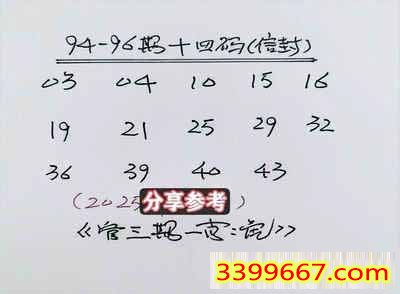 94-96期十四码(信封)
03 04 10 15 16
19 21 25 29 32
36 39 40 43
(2025 分享参考 )
《管三期一
3399667.com